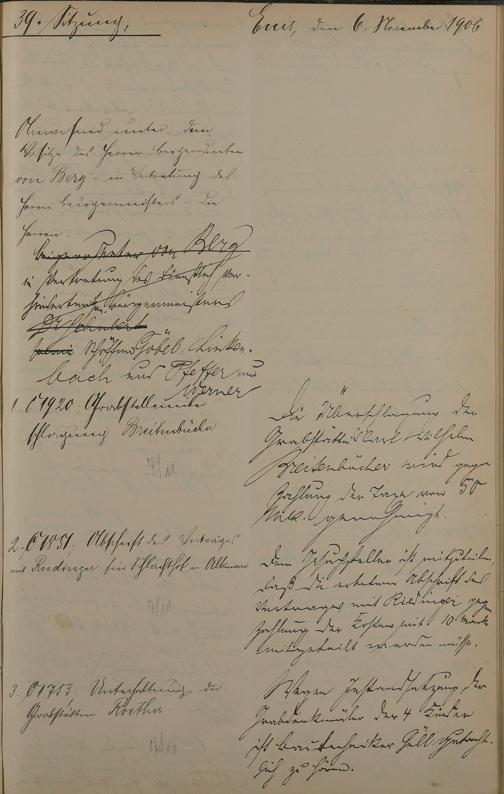 39. Sitzung,
Ems, den 6. November 1906
Anwesend unter dem
Vorsitz des Herrn Beigeordneten
von Berg – in Vertretung des
Herrn Bürgermeisters – die
Herren:
Beigeordneter von Berg
in Vertretung des dienstlich ver-
hinderten Bürgermeisters
Dr Schubert
Schöffen Göbel, Linken-
bach und Pfeffer und
Werner
1. C 1920, Grabstellenum-
schlagung Breitenbücher
7/11
Die Überschlagung der
Grabstätte Karl Wilhelm
Breitenbücher wird gegen
Zahlung der Taxe von 50
Mark genehmigt.
2. C 1851. Abschrift des Vertrages
mit Riedinger für Schlachthof in
7/11
Dem Gesuchsteller ist mitzuteilen,
daß die erbetene Abschrift des
Vertrages mit Riedinger gegen
Zahlung der Kosten mit 10 Mark
mitgeteilt werden müsse.
3. C 1753. Unterhaltung der
Grabstätten Roether.
7/11
Wegen Instandsetzung der
Grabdenkmäler der 4 Kinder
ist Bautechniker Göll gutacht-
lich zu hören.